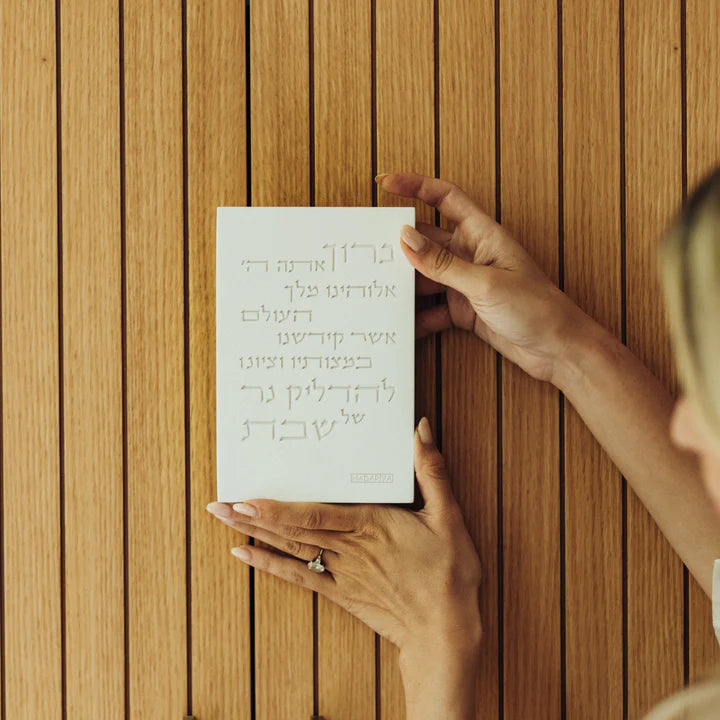 ברוך
אתה ה׳
אלוהינו מלך
העולם
אשר קידשנו
במצותיו וציונו
להדליק נר
של
שבת
HADARIYA